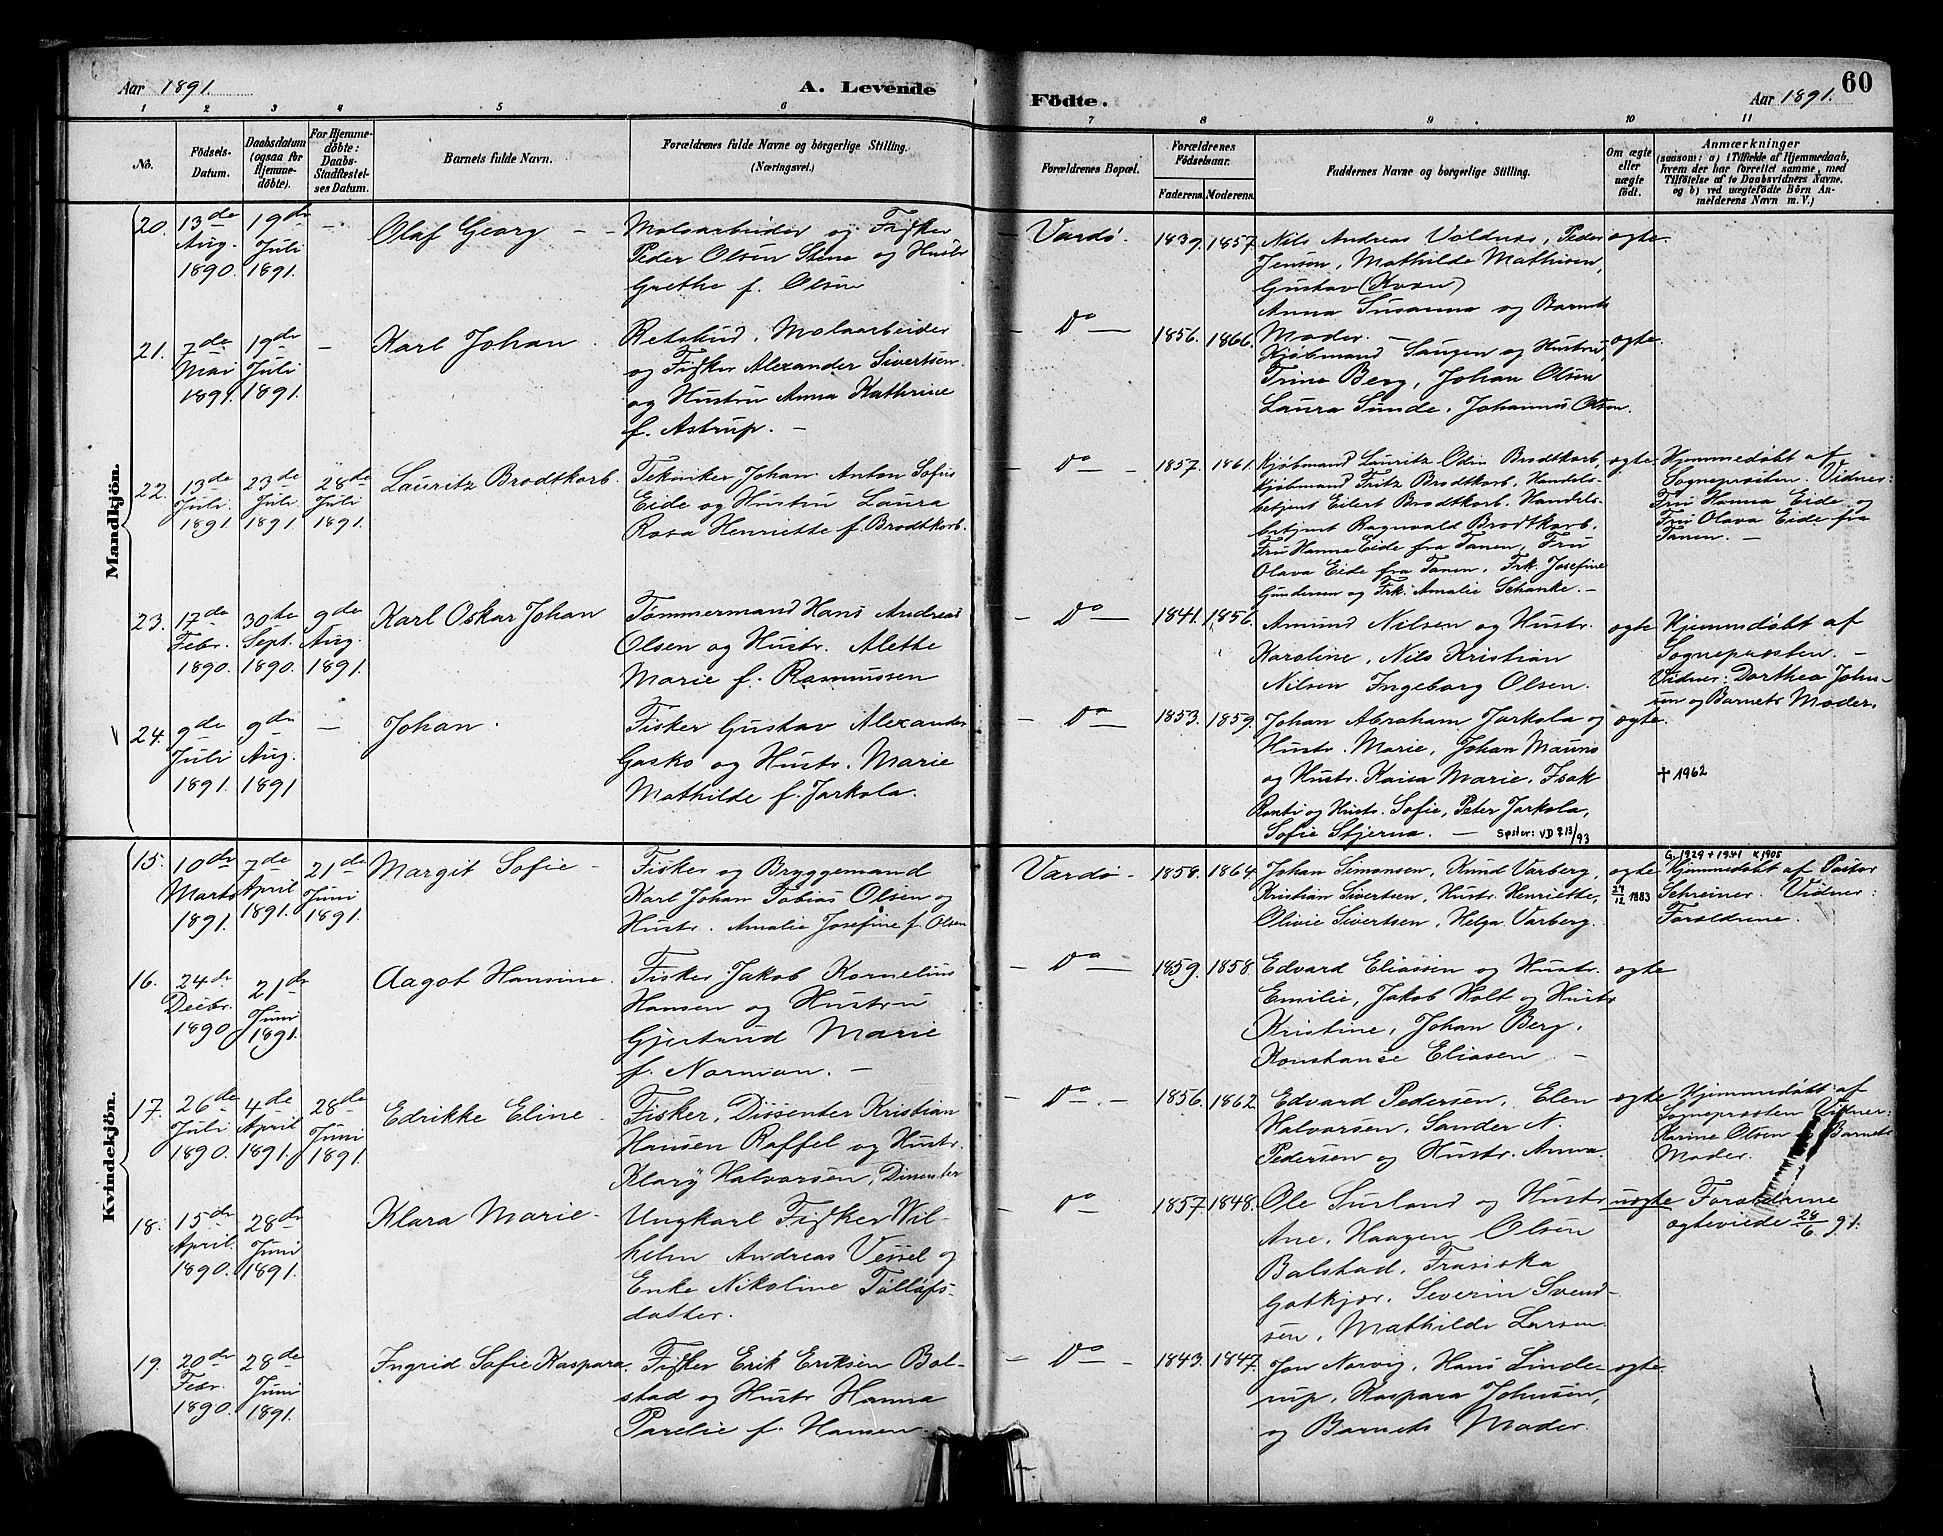 Aar 1891.
A. Levende
Fødte.
Aar 1891.
60
1 2 3 4 5 6 7 8 9 10 11
No.
Födsels-
Datum.
Daabsdatum
(ogsaa for
Hjemme-
döbte).
For Hjemme-
döbte:
Daabs-
Stadfæstel-
ses Datum.
Barnets fulde Navn.
Forældrenes fulde Navne og borgerlige Stilling.
(Næringsvei.)
Forældrenes Bopæl.
Forældrenes
Födselsaar.
Faderens. Moderens.
Faddernes Navne og borgerlige Stilling.
Om ægte
eller
uægte
födt.
Anmærkninger
(saasom: a) i Tilfælde af Hjemmedaab,
hvem der har forrettet samme, med
Tilföielse af to Daabsvidners Navne.
og b) ved uægtefödte Börn An-
melderens Navn m. V.)
Mandkjön.
20. 13de Aug. 1890. 19de Juli 1891. — Olaf Georg —
Moloarbeider og Fisker
Peder Olsen Stene og Hustr
Grethe f. Olsen
Vardø. 1839. 1857.
Nils Andreas Voldnes, Peder
Jensen, Mathilde Mathisen,
Gustav (Kvæn)
Anna Susanna og Barnets
Moder. —
ægte.
21. 7de Mai 1891. 19de Juli 1891. — Karl Johan.
Retsbud, Moloarbeider
og Fisker Alexander Sivertsen
og Hustru Anna Kathrine
f. Astrup. —
— Do — 1856. 1866.
Kjøbmand Saugen og Hustru,
Trine Berg, Johan Olsen
Laura Sunde, Johannes Olsen.
ægte.
22. 13de Juli 1891. 23de Juli 1891. 28de Juli 1891. Lauritz Brodtkorb.
Tekniker Johan Anton Sofus
Eide og Hustru Laura
Rosa Henriette f. Brodtkorb.
— Do — 1857. 1861.
Kjøbmand Lauritz Odin Brodtkorb,
Kjøbmand Fritz Brodtkorb, Handels-
betjent Eilert Brodtkorb. Handels-
betjent Ragnvald Brodtkorb.
Fru Hanna Eide fra Tanen, Fru
Olava Eide fra Tanen, Frk. Josefine
Gundersen og Frk. Amalie Schanke. —
ægte
Hjemmedøbt af
Sognepræsten. Vidner:
Fru Hanna Eide og
Fru Olava Eide fra
Tanen. —
23. 17de Febr. 1890. 30te Sept. 1890. 9de Aug. 1891. Karl Oskar Johan
Tømmermand Hans Andreas
Olsen og Hustr. Alette
Marie f. Rasmussen
— Do — 1841. 1856.
Amund Nilsen og Hustr.
Karoline, Nils Kristian
Nilsen Ingeborg Olsen.
ægte
Hjemmdøbt af
Sognepræsten. —
Vidner: Dorthea John-
sen og Barnets Moder.
24. 9de Juli 1891. 9de Aug. 1891 — Johan.
Fisker Gustav Alexander
Gasko og Hustr. Marie
Mathilde f. Jarkola.
— Do — 1853. 1859.
Johan Abraham Jarkola og
Hustr. Marie, Johan Mauno
og Hustr. Kaisa Marie, Isak
Ranti og Hustr. Sofie, Peter Jarkola,
Sofie Stjerna. — Søster: VD 213/93
ægte.
+ 1962
Kvindekjön.
15. 10de Marts 1891. 7de April 1891. 21de Juni 1891. Margit Sofie —
Fisker og Bryggemand
Karl Johan Tobias Olsen og
Hustr. Amalie Josefine f. Olsen
Vardø — 1858. 1864.
Johan Simonsen, Knud Varberg,
Kristian Sivertsen, Hustr. Henriette,
Olivie Sivertsen, Helga Varberg.
ægte
27/12 1883
G. 1929 + 1941 K 1905
Hjemmedøbt af Pastor
Schreiner. Vidner:
Forældrene.
16. 24de Decbr. 1890. 21de Juni 1891. Aagot Hansine.
Fisker Jakob Kornelius
Hansen og Hustru
Gjertrud Marie
f. Norman. —
— Do — 1859. 1858.
Edvard Eliassen og Hustr.
Emilie, Jakob Holt og Hustr
Kristine, Johan Berg,
Konstanse Eliasen. —
ægte
17. 26de Juli 1890. 4de April 1891. 28de Juni 1891. Edrikke Eline.
Fisker, Dissenter Kristian
Hansen Raffel og Hustr.
Klary Halvorsen, Dissenter
— Do — 1856. 1862
Edvard Pedersen, Elen
Halvorsen, Sander N.
Pedersen og Hustr. Anna.
ægte
Hjemmedøbt af
Sognepræsten Vidner:
Karine Olsen Barnets
Moder.
18. 15de April 1890. 28de Juni 1891. Klara Marie.
Ungkarl Fisker Wil-
helm Andreas Vessel og
Enke Nikoline Tollofs-
datter.
— Do — 1857. 1848.
Ole Surland og Hustr
Ane, Haagen Olsen
Balstad, Frasiska
Gotkjær, Severin Svend-
sen, Mathilde Larsen.
uægte
Forældrene
ægteviede 28/6 91.
19. 20de Febr. 1890. 28de Juni 1891. Ingrid Sofie Kaspara.
Fisker Erik Eriksen Bol-
stad og Hustr Hanna
Parelie f. Hansen.
— Do — 1843. 1847.
Jon Narvig, Hans Linde-
rup, Kaspara Johnsen,
og Barnets Moder.
ægte.